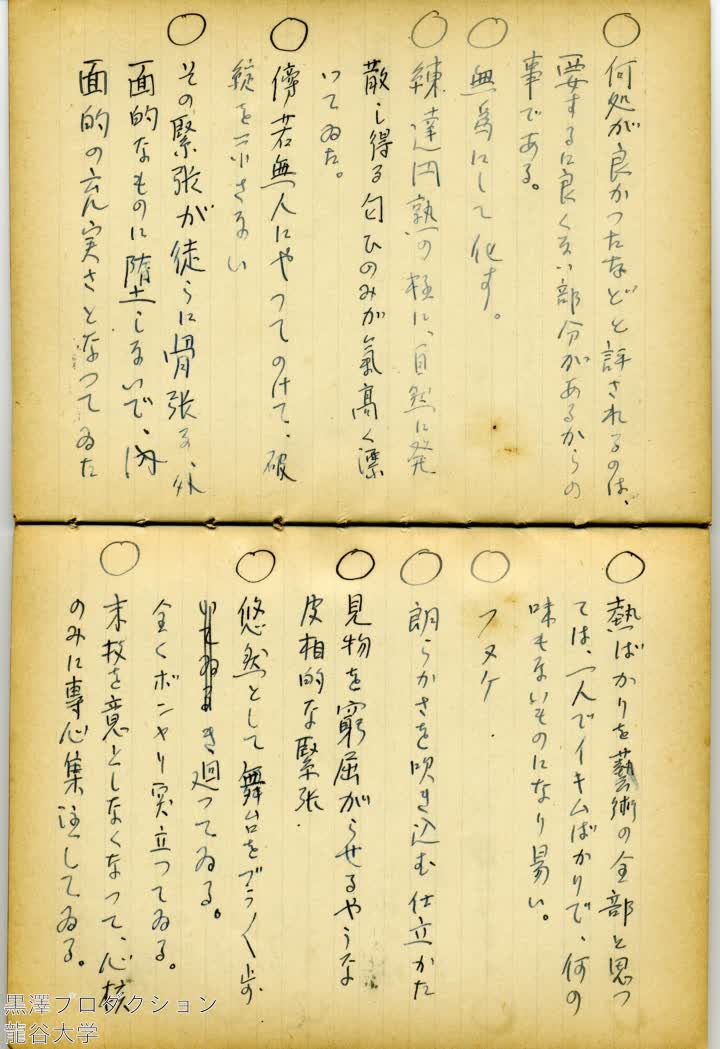 ○何処が良かつたなどと評されるのは、
要するに良くない部分があるからの
事である。
○無為にして化す。
○錬達円熟の極に、自然に発
散し得る匂ひのみが氣高く漂
いてゐた。
○傍若無人にやつてのけて、破
綻を示さない
○その緊張が徒らに骨張る、外
面的なものに堕しないで、内
面的の充実さとなつてゐた
○熱ばかりを藝術の全部と思つ
ては、一人でイキムばかりで、何の
味もないものになり易い。
○フヌケ.
○朗らかさを吹き込む仕立かた
○見物を窮屈がらせるやうな
皮相的な緊張.
○悠然として舞台をブラ〱歩
き廻つてゐる。
全くボンヤリ突立つてゐる。
○末技を意としなくなつて、心核
のみに専心集注してゐる。
黒澤プロダクション
龍谷大学